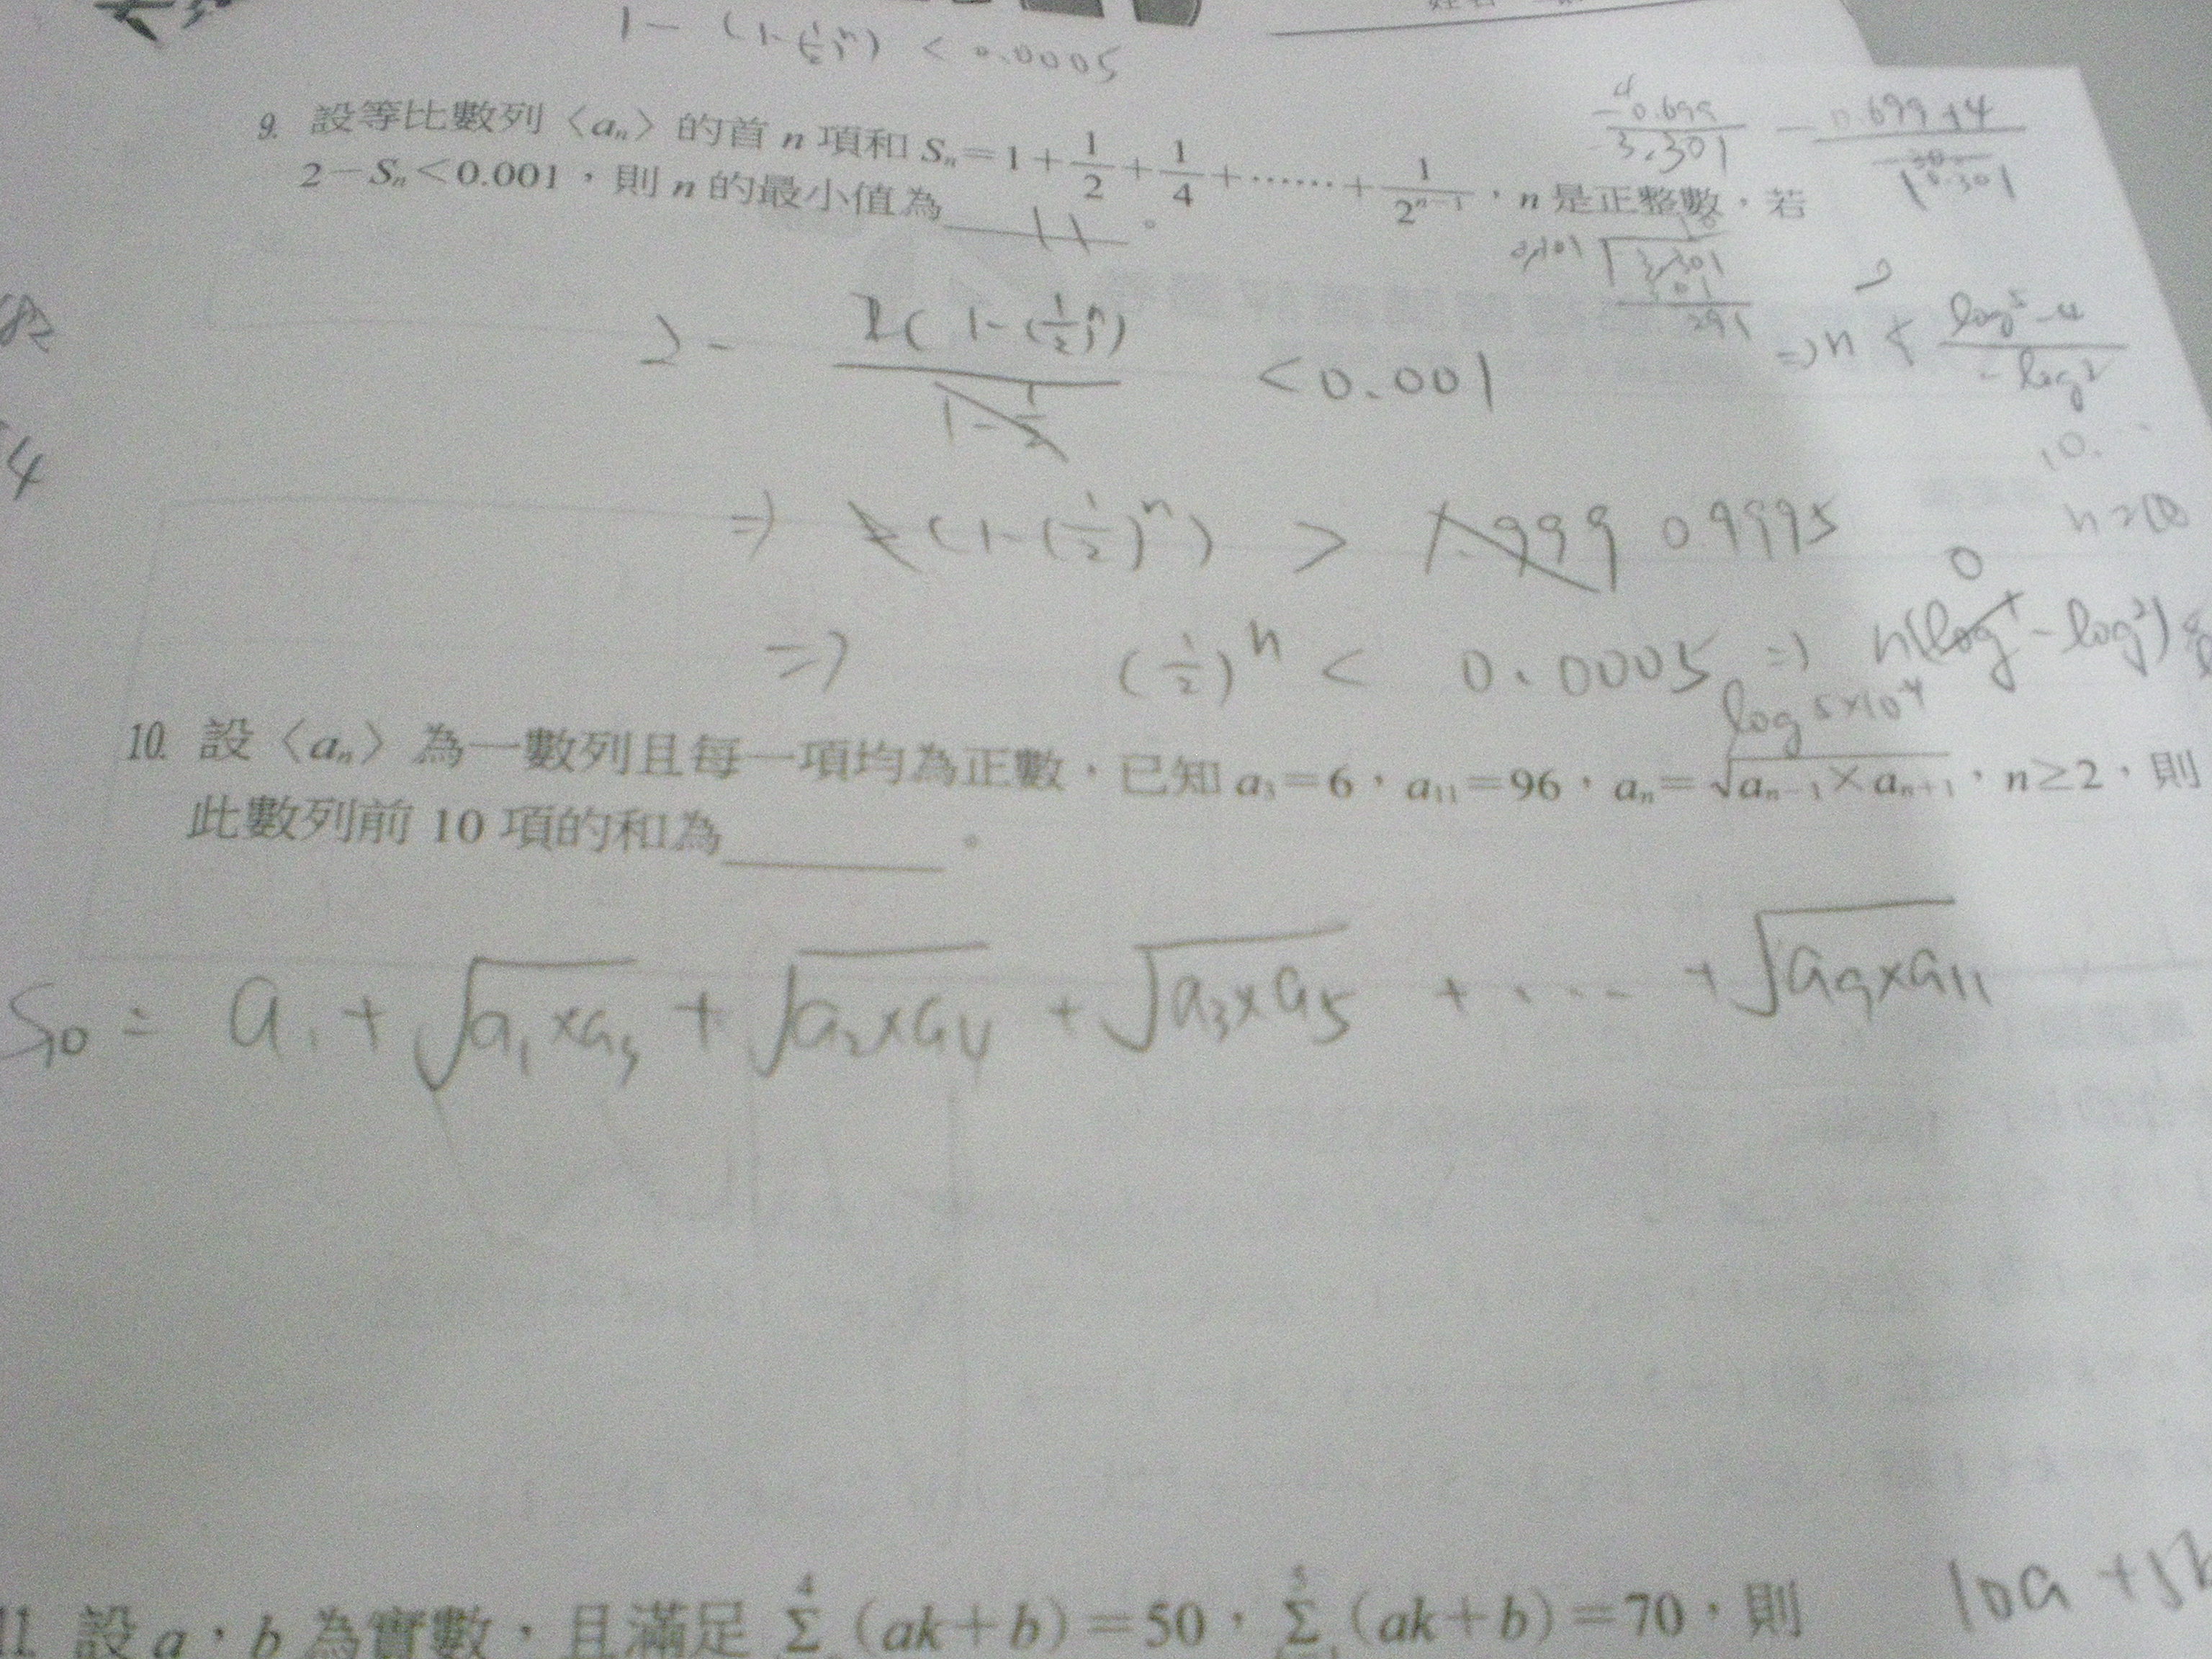 1-(1-(1/2)^n) < 0.0005
9. 設等比數列〈aₙ〉的首 n 項和 Sₙ=1+1/2+1/4+……+1/2ⁿ⁻¹,n 是正整數,若
2-Sₙ<0.001,則 n 的最小值為 11 。
4
-0.699
3.301
0.699+4
2 - 1(1-(1/2)^n) / (1-1/2) < 0.001
⇒ n < (log5-4)/(-log2)
10...
⇒ 2(1-(1/2)^n) > 1.999 0.9995
⇒ (1/2)^n < 0.0005 ⇒ n(log1-log2)
0
log 5×10⁻⁴
4
10. 設〈aₙ〉為一數列且每一項均為正數,已知 a₃=6,a₁₁=96,aₙ=√(aₙ₋₁×aₙ₊₁),n≥2,則
此數列前 10 項的和為 。
S₁₀ = a₁ + √(a₁×a₃) + √(a₂×a₄) + √(a₃×a₅) + ... + √(a₉×a₁₁)
10a+5b
11. 設 a,b 為實數,且滿足 Σ⁴(ak+b)=50,Σ⁵(ak+b)=70,則